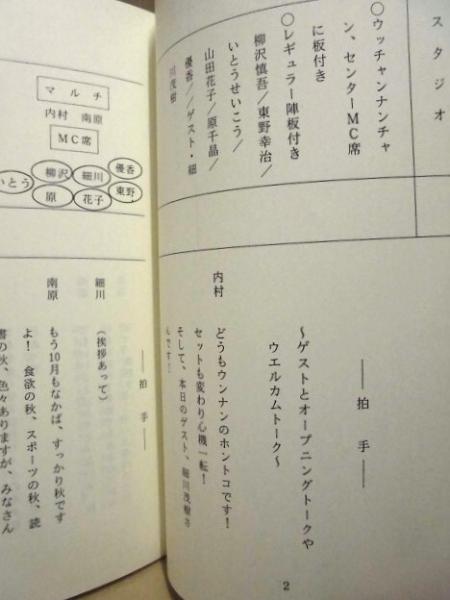 スタジオ
〇ウッチャンナンチャ
ン、センターMC席
に板付き
〇レギュラー陣板付き
柳沢慎吾／東野幸治／
いとうせいこう／
山田花子／原千晶／
優香／／ゲスト・細
川茂樹
――拍　手――
〜ゲストとオープニングトークや
ウエルカムトーク〜
内村　どうもウンナンのホントコです！
セットも変わり心機一転！
そして、本日のゲスト、細川茂樹さ
んです！
2
マルチ
内村　南原
MC席
いとう　柳沢　細川　優香
原　花子　東野
――拍　手――
細川　（挨拶あって）
南原　もう10月もなかば、すっかり秋です
よ！　食欲の秋、スポーツの秋、読
書の秋、色々ありますが、みなさん